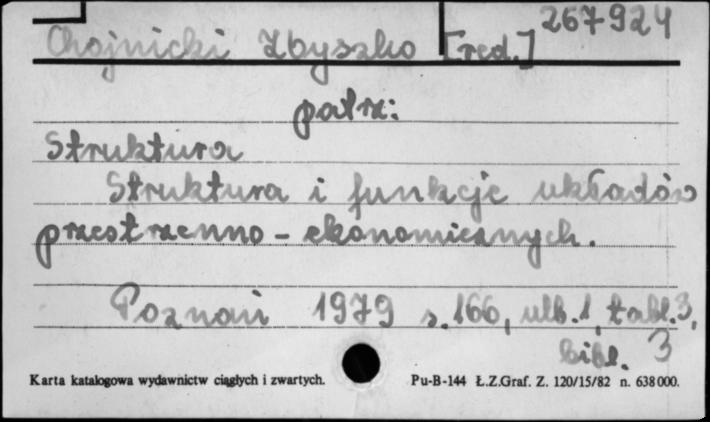 267924
Chojnicki Zbyszko [red.]
patrz:
Struktura
Struktura i funkcje układów
przestrzenno - ekonomicznych.
Poznań 1979 s. 166, ulb. 1, tabl. 3,
bibl. 3
Karta katalogowa wydawnictw ciągłych i zwartych. Pu-B-144 Ł.Z.Graf. Z. 120/15/82 n. 638000.